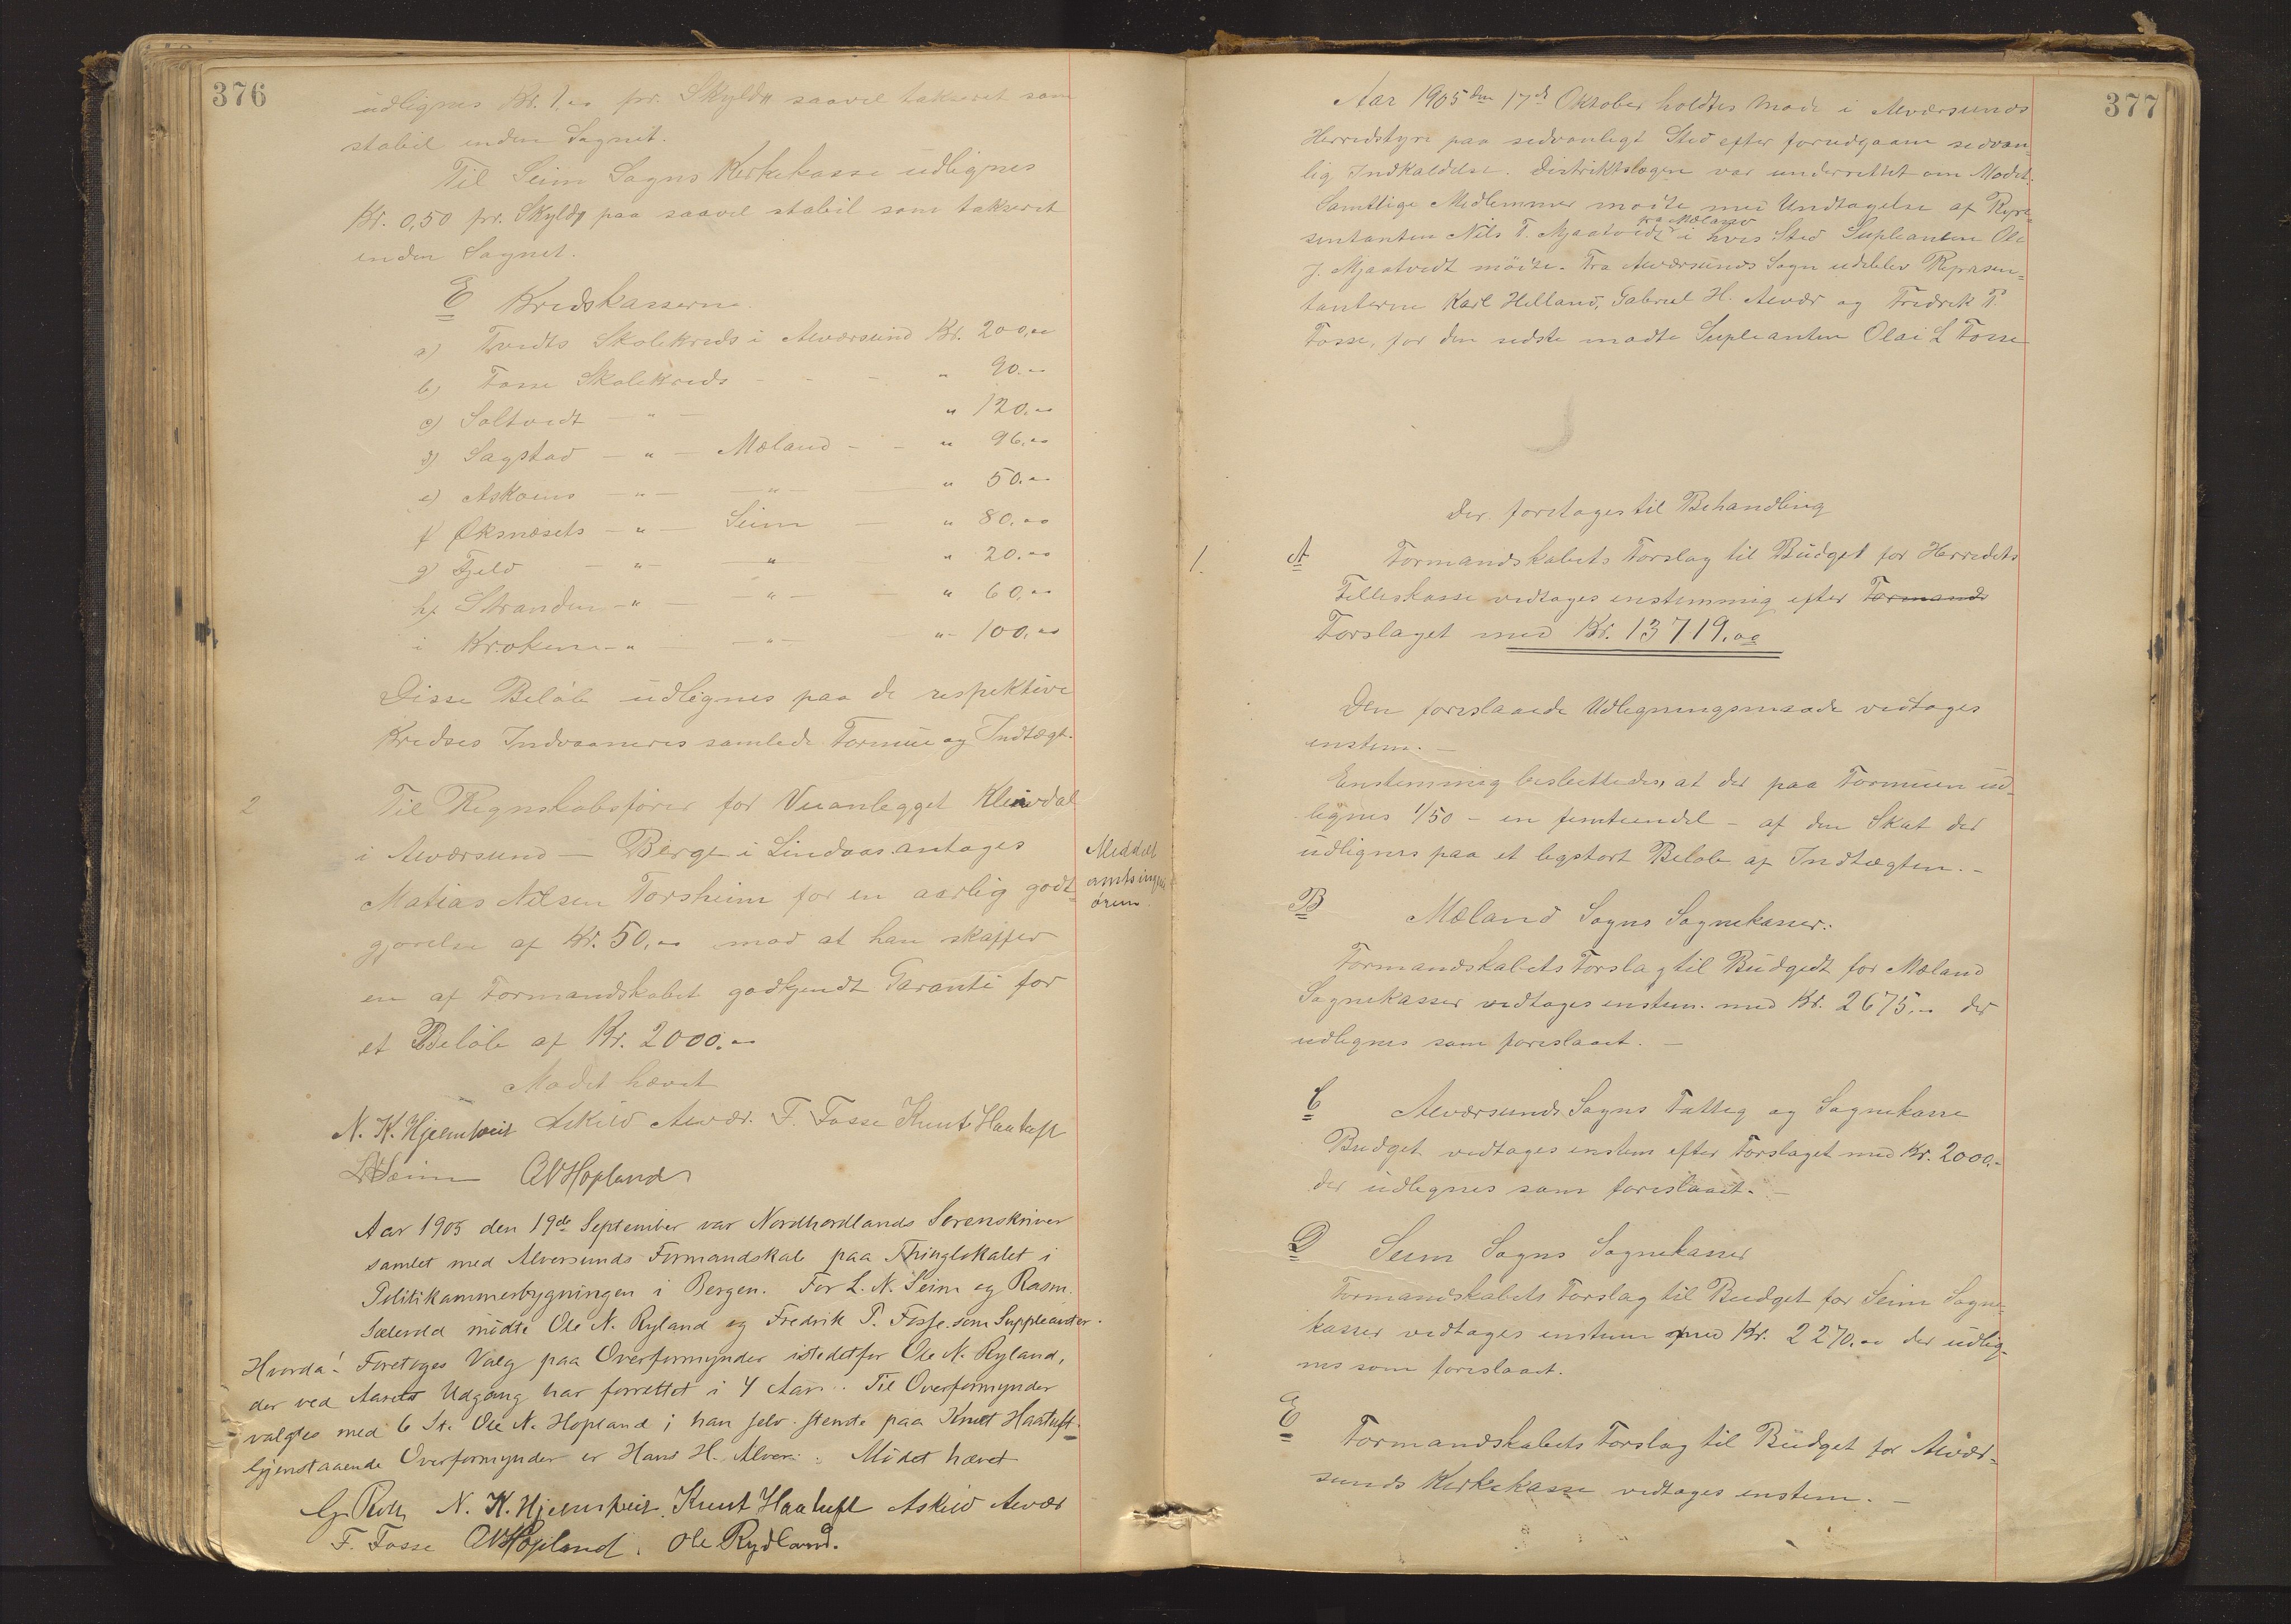 376
udlignes Kr. 1,00 pr. Skyld# saavel takseret som
stabil inden Sognet.
Til Seim Sogns Kirkekasse udlignes
Kr. 0,50 pr. Skyld# paa saavel stabil som takseret
inden Sognet.
E Kredskasserne.
a) Tvedts Skolekreds i Alværsund Kr. 200,00
b) Fosse Skolekreds - - - " 90.00
c) Soltvedt - " - " 120.00
d) Sagstad - " - Mæland - - " 96,00
e) Askeims - " - - " - " 50.00
f Øksnæsets - " - Seim - " 80,00
g) Fjeld - " - " " 20.00
h) Stranden - " - - " - - " 60,00
i Kroken - " - - " - " - 100,00
Disse Beløb udlignes paa de respektive
Kredses Indvaaneres samlede Formue og Indtægt.
2 Til Regnskabsfører for Veianlegget Kleivdal
i Alværsund - Berge i Lindaas antages
Matias Nilsen Torsheim for en aarlig godt-
gjørelse af Kr. 50,00 mod at han skaffer
en af Formandskabet godkjendt Garanti for
et Beløb af Kr. 2000.00
Meddelt
amtsingeni
øren.
Mødet hævet
N. K. Hjelmtveit Askild Alvær. F. Fosse Knut Haatuft
LNSeim ONHopland
Aar 1905 den 19de September var Nordhordlands Sorenskriver
samlet med Alversunds Formandskab paa Thinglokalet i
Politikammerbygningen i Bergen. For L. N. Seim og Rasm.
Sælevold mødte Ole N. Ryland og Fredrik P. Fosse som Suppleanter.
Hvorda: Foretoges Valg paa Overformynder istedetfor Ole N. Ryland,
der ved Aarets Udgang har forrettet i 4 Aar. Til Overformynder
valgtes med 6 St. Ole N. Hopland; han selv stemte paa Knut Haatuft.
Gjenstaaende Overformynder er Hans H. Alver. Mødet hævet
N. K. Hjelmtveit. Knut Haatuft Askild Alvær
F. Fosse ONHopland. Ole Rydland.
377
Aar 1905 den 17de Oktober holdtes Møde i Alværsunds
Herredstyre paa sedvanligt Sted efter forudgaaen sedvan-
lig Indkaldelse. Distriktslægen var underrettet om Mødet.
Samtlige Medlemmer mødte med Undtagelse af Repre-
fra Mæland
sentanten Nils T. Mjaatvedt i hvis Sted Supleanten Ole
J. Mjaatvedt mødte. Fra Alværsunds Sogn udeblev Repræsen-
tanterne Karl Helland, Gabriel H. Alvær og Fredrik P.
Fosse, for den sidste mødte Supleanten Olai L Fosse
Der foretoges til Behandling
1. A Formandskabets Forslag til Budget for Herredets
Felleskasse vedtages enstemmig efter Formands
Forslaget med Kr. 13719.00
Den foreslaaede Udligningsmaade vedtages
enstem. -
Enstemmig besluttedes, at der paa Formuen ud-
lignes 1/50 - en femtiendel - af den Skat der
udlignes paa et ligstort Beløb af Indtægten. -
B Mæland Sogns Sognekasser.
Formandskabets Forslag til Budgedt for Mæland
Sognekasser vedtages enstem. med Kr. 2675.- der
udlignes som foreslaaet. -
C Alværsunds Sogns Fattig og Sognekasse
Budget vedtages enstem efter Forslaget med Kr. 2000.-
der udlignes som foreslaaet. -
D Seim Sogns Sognekasser
Formandskabets Forslag til Budget for Seim Sogne-
kasser vedtages enstem med Kr. 2270.00 der udlig-
nes som foreslaaet.
E Formandskabets Forslag til Budget for Alvær-
sunds Kirkekasse vedtages enstem. -